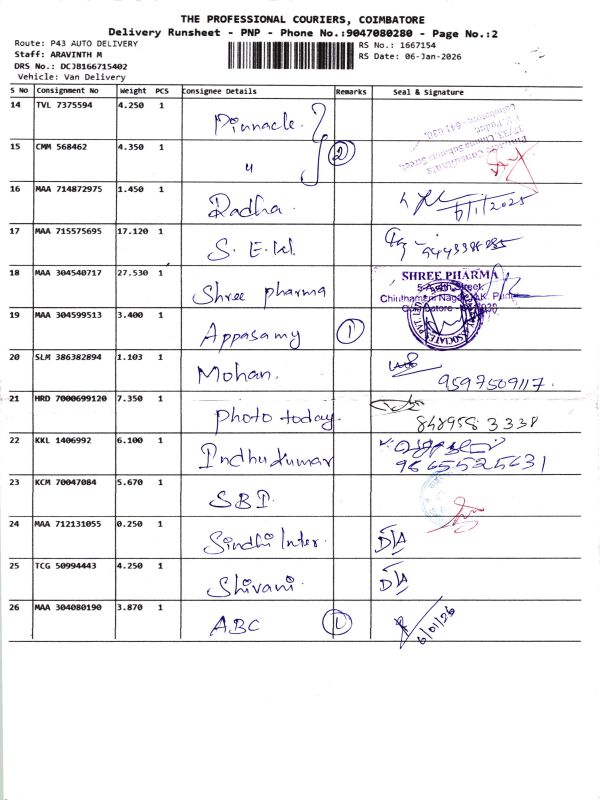 THE PROFESSIONAL COURIERS, COIMBATORE
Delivery Runsheet - PNP - Phone No.:9047080280 - Page No.:2
Route: P43 AUTO DELIVERY
Staff: ARAVINTH M
DRS No.: DCJB166715402
Vehicle: Van Delivery
RS No.: 1667154
RS Date: 06-Jan-2026
S No Consignment No Weight PCS Consignee Details Remarks Seal & Signature
14 TVL 7375594 4.250 1 Pinnacle.
15 CMM 568462 4.350 1 " 2
16 MAA 714872975 1.450 1 Radha. 6/1/2025
17 MAA 715575695 17.120 1 S. E. W.
18 MAA 304540717 27.530 1 Shree pharma SHREE PHARMA
19 MAA 304599513 3.400 1 Appasamy 1
20 SLM 386382894 1.103 1 Mohan. 9597509117.
21 HRD 7000699120 7.350 1 Photo today. 848958 3338
22 KKL 1406992 6.100 1 Indhukumar 9865525631
23 KCM 70047084 5.670 1 SBI.
24 MAA 712131055 0.250 1 Sindhi Inter. D/A
25 TCG 50994443 4.250 1 Shivani. D/A
26 MAA 304080190 3.870 1 ABC 1 6/01/26